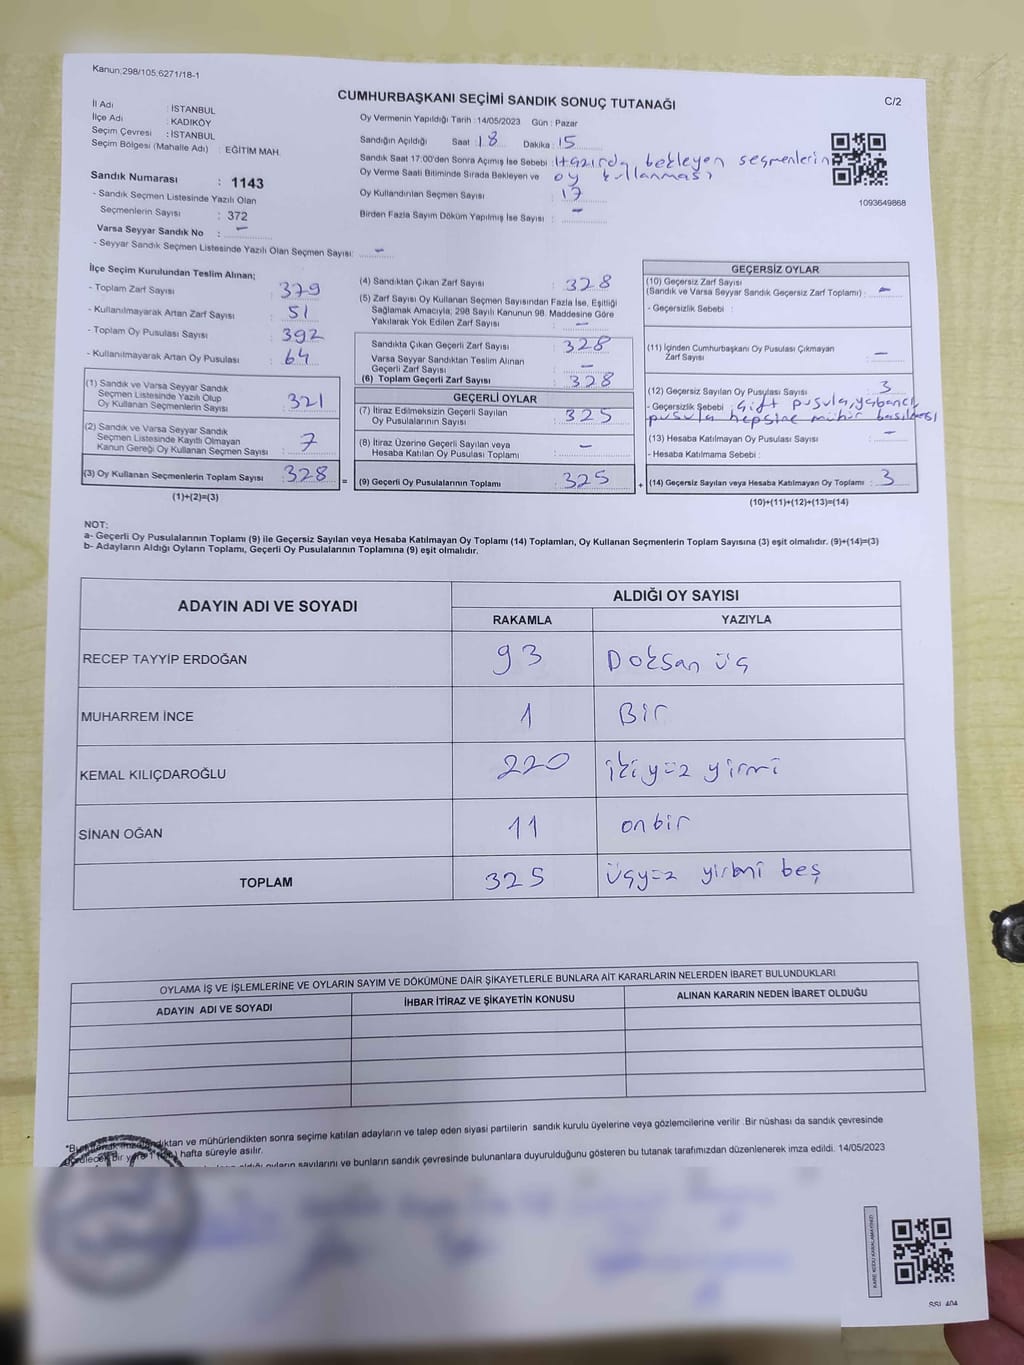 Kanun;298/105;6271/18-1
C/2
CUMHURBAŞKANI SEÇİMİ SANDIK SONUÇ TUTANAĞI
İl Adı : İSTANBUL
İlçe Adı : KADIKÖY
Seçim Çevresi : İSTANBUL
Seçim Bölgesi (Mahalle Adı) : EĞİTİM MAH.
Sandık Numarası : 1143
- Sandık Seçmen Listesinde Yazılı Olan
Seçmenlerin Sayısı : 372
Varsa Seyyar Sandık No : -
- Seyyar Sandık Seçmen Listesinde Yazılı Olan Seçmen Sayısı: -
Oy Vermenin Yapıldığı Tarih : 14/05/2023 Gün : Pazar
Sandığın Açıldığı Saat : 18 Dakika : 15
Sandık Saat 17:00'den Sonra Açımış İse Sebebi : Hazırda bekleyen seçmenlerin
Oy Verme Saati Bitiminde Sırada Bekleyen ve oy kullanması
Oy Kullandırılan Seçmen Sayısı : 17
Birden Fazla Sayım Döküm Yapılmış İse Sayısı : -
1093649868
İlçe Seçim Kurulundan Teslim Alınan;
- Toplam Zarf Sayısı : 379
- Kullanılmayarak Artan Zarf Sayısı : 51
- Toplam Oy Pusulası Sayısı : 392
- Kullanıtmayarak Artan Oy Pusulası : 64
(1) Sandık ve Varsa Seyyar Sandık
Seçmen Listesinde Yazılı Olup
Oy Kullanan Seçmenlerin Sayısı : 321
(2) Sandık ve Varsa Seyyar Sandık
Seçmen Listesinde Kayıtlı Olmayan
Kanun Gereği Oy Kullanan Seçmen Sayısı : 7
(3) Oy Kullanan Seçmenlerin Toplam Sayısı : 328
(1)+(2)=(3)
(4) Sandıktan Çıkan Zarf Sayısı : 328
(5) Zarf Sayısı Oy Kullanan Seçmen Sayısından Fazla İse, Eşitliği
Sağlamak Amacıyla; 298 Sayılı Kanunun 98. Maddesine Göre
Yakılarak Yok Edilen Zarf Sayısı : -
Sandıkta Çıkan Geçerli Zarf Sayısı : 328
Varsa Seyyar Sandıktan Teslim Alınan
Geçerli Zarf Sayısı : -
(6) Toplam Geçerli Zarf Sayısı : 328
GEÇERLİ OYLAR
(7) İtiraz Edilmeksizin Geçerli Sayılan
Oy Pusulalarının Sayısı : 325
(8) İtiraz Üzerine Geçerli Sayılan veya
Hesaba Katılan Oy Pusulası Toplamı : -
= (9) Geçerli Oy Pusulalarının Toplamı : 325
GEÇERSİZ OYLAR
(10) Geçersiz Zarf Sayısı
(Sandık ve Varsa Seyyar Sandık Geçersiz Zarf Toplamı) : -
- Geçersizlik Sebebi :
(11) İçinden Cumhurbaşkanı Oy Pusulası Çıkmayan
Zarf Sayısı : -
(12) Geçersiz Sayılan Oy Pusulası Sayısı : 3
- Geçersizlik Sebebi : Çift pusula, yabancı
pusula hepsine mühür basılması
(13) Hesaba Katılmayan Oy Pusulası Sayısı : -
- Hesaba Katılmama Sebebi :
+ (14) Geçersiz Sayılan veya Hesaba Katılmayan Oy Toplamı : 3
(10)+(11)+(12)+(13)=(14)
NOT:
a- Geçerli Oy Pusulalarının Toplamı (9) ile Geçersiz Sayılan veya Hesaba Katılmayan Oy Toplamı (14) Toplamları, Oy Kullanan Seçmenlerin Toplam Sayısına (3) eşit olmalıdır. (9)+(14)=(3)
b- Adayların Aldığı Oyların Toplamı, Geçerli Oy Pusulalarının Toplamına (9) eşit olmalıdır.
ADAYIN ADI VE SOYADI
ALDIĞI OY SAYISI
RAKAMLA YAZIYLA
RECEP TAYYİP ERDOĞAN 93 Doksan üç
MUHARREM İNCE 1 Bir
KEMAL KILIÇDAROĞLU 220 ikiyüz yirmi
SİNAN OĞAN 11 onbir
TOPLAM 325 üçyüz yirmi beş
OYLAMA İŞ VE İŞLEMLERİNE VE OYLARIN SAYIM VE DÖKÜMÜNE DAİR ŞİKAYETLERLE BUNLARA AİT KARARLARIN NELERDEN İBARET BULUNDUKLARI
ADAYIN ADI VE SOYADI İHBAR İTİRAZ VE ŞİKAYETİN KONUSU ALINAN KARARIN NEDEN İBARET OLDUĞU
ve mühürlendikten sonra seçime katılan adayların ve talep eden siyasi partilerin sandık kurulu üyelerine veya gözlemcilerine verilir. Bir nüshası da sandık çevresinde
hafta süreyle asılır.
sayılarını ve bunların sandık çevresinde bulunanlara duyurulduğunu gösteren bu tutanak tarafımızdan düzenlenerek imza edildi. 14/05/2023
KARE KODU KARALAMAYINIZ!